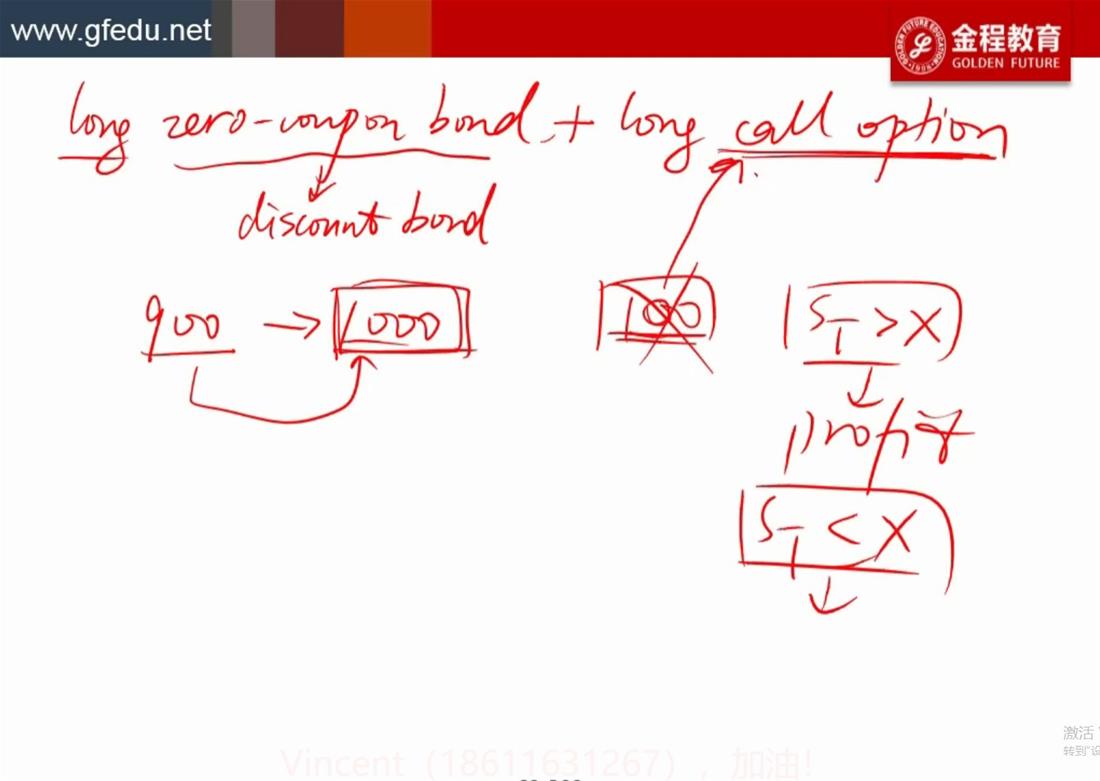 www.gfedu.net
金程教育
GOLDEN FUTURE
long zero-coupon bond + long call option
discount bond
900 → 1000
100
S_T > X
profit
S_T < X
激活
转到"设
Vincent（18611631267），加油!